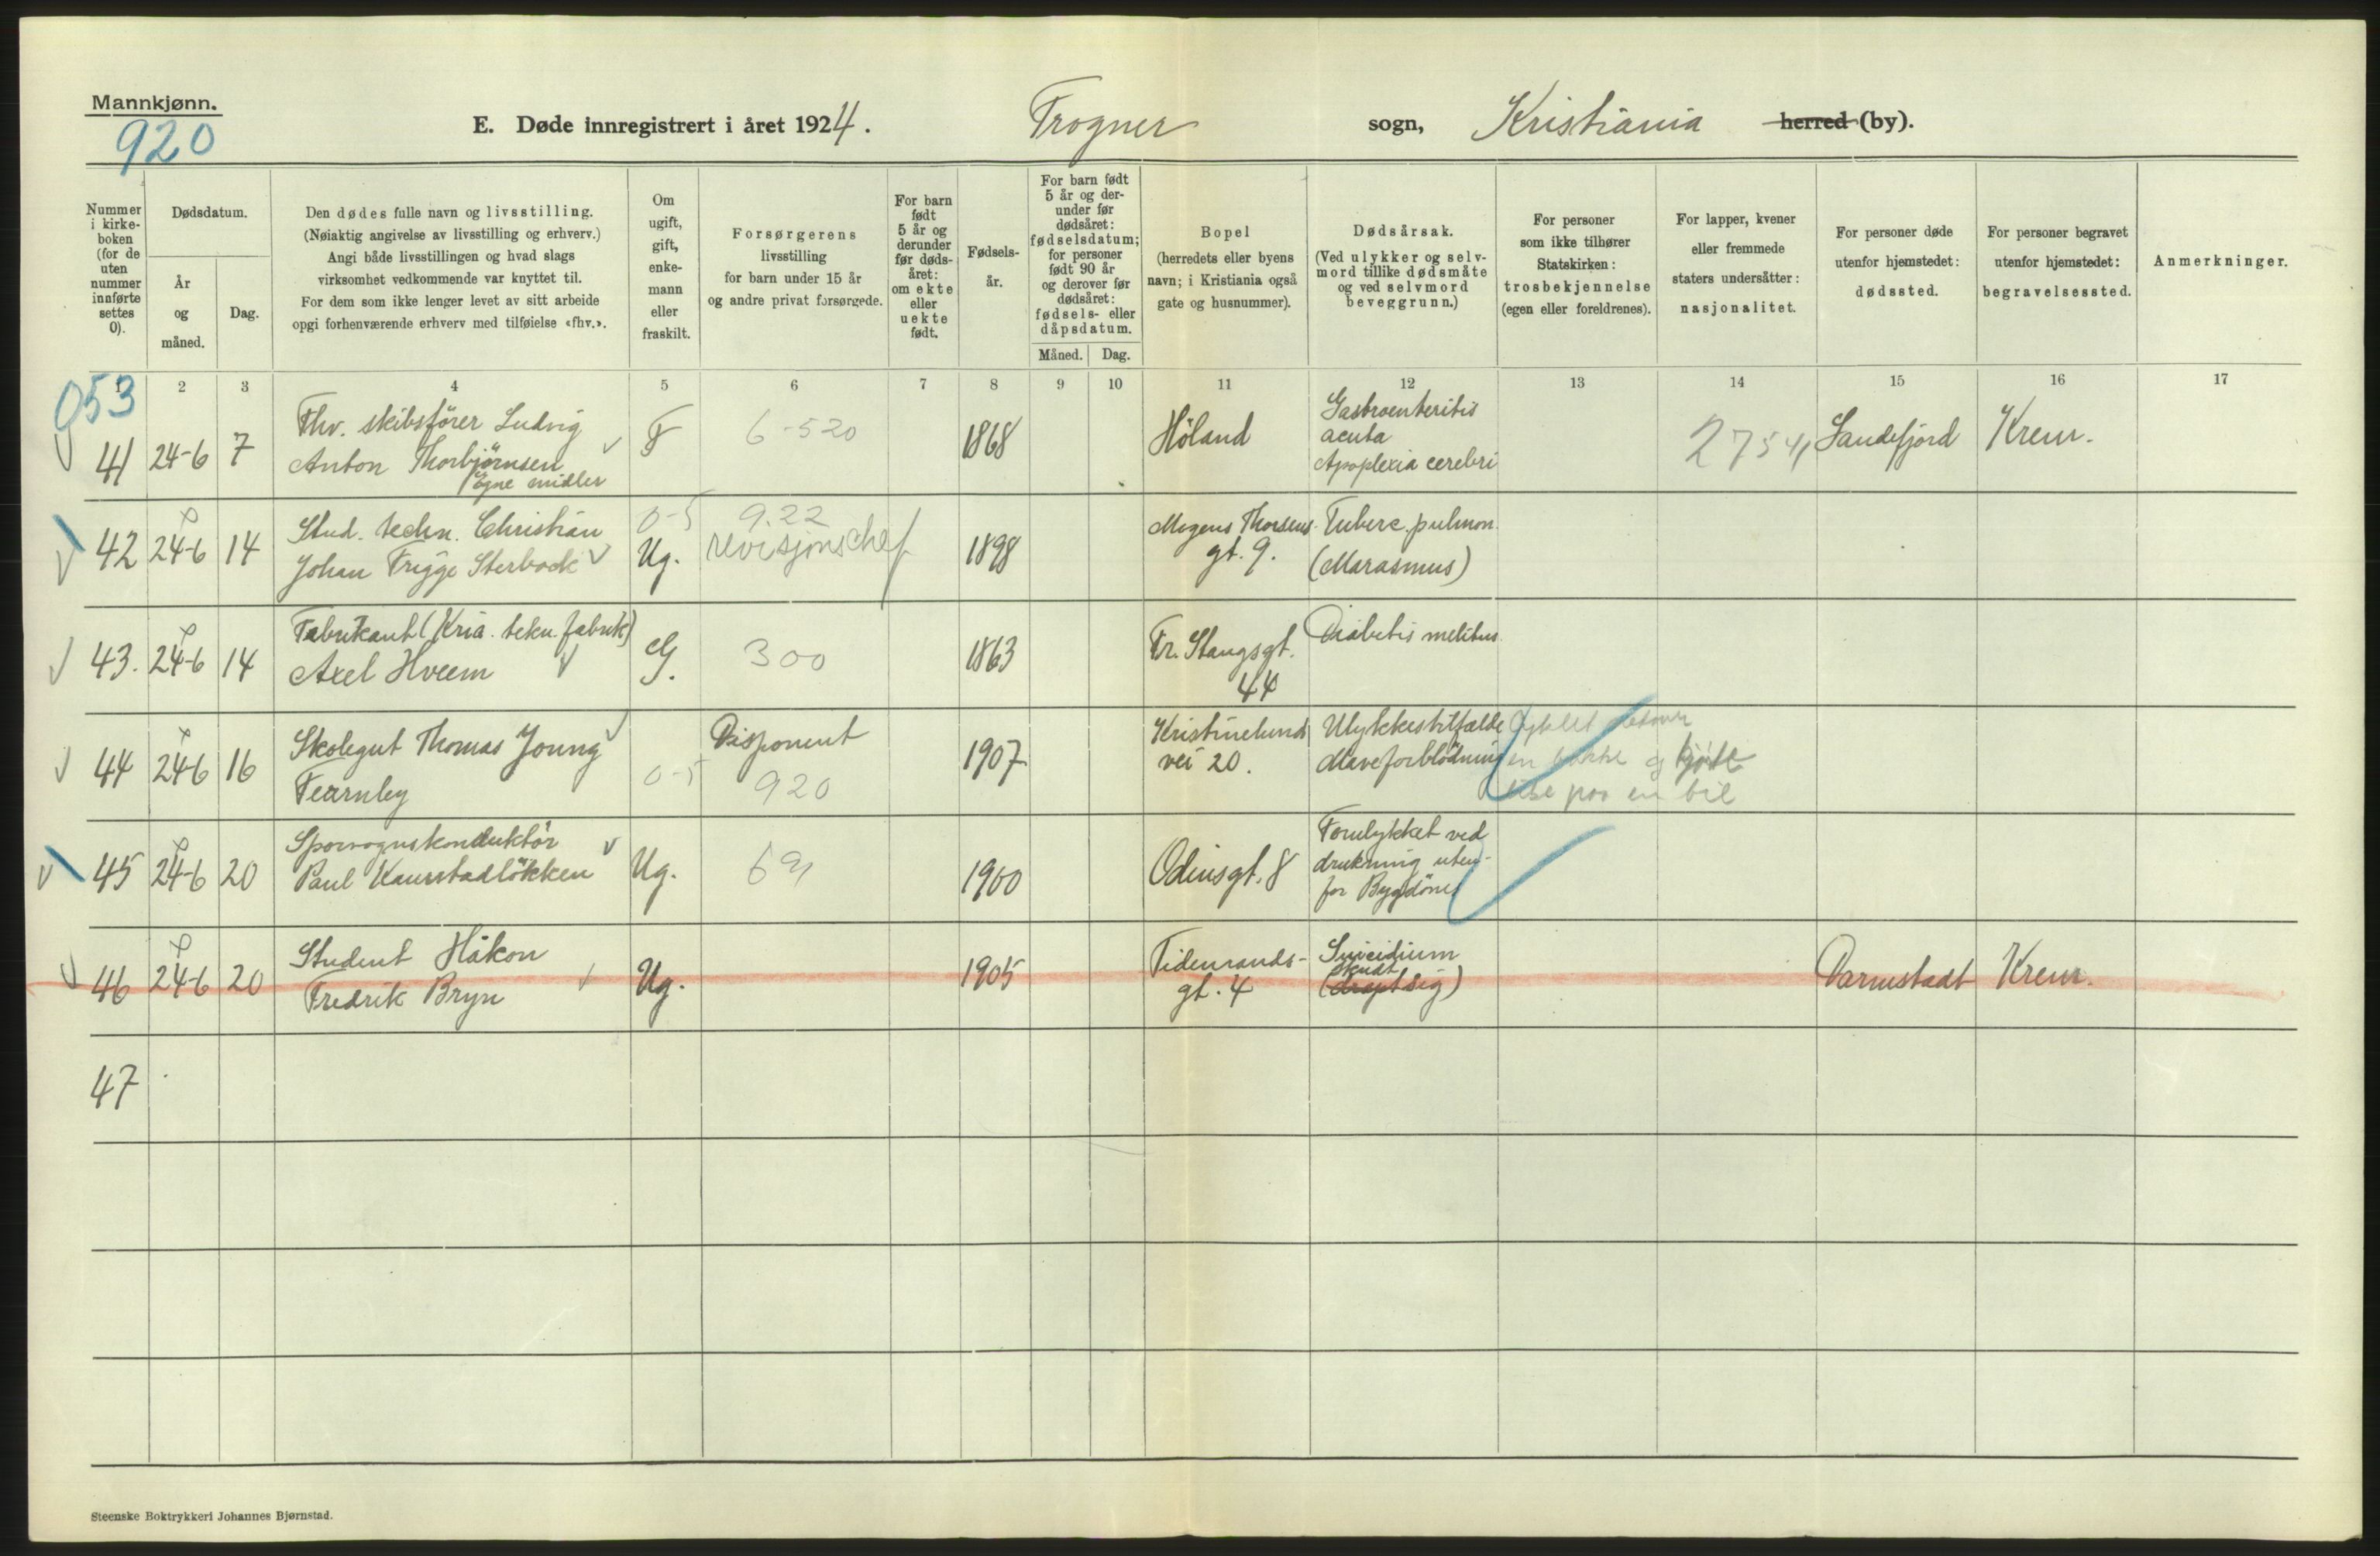 Mannkjønn.
920
E. Døde innregistrert i året 1924. Frogner sogn, Kristiania herred (by).
Nummer i kirke-boken (for de uten nummer innførte settes 0).
Dødsdatum.
År og måned.
Dag.
Den dødes fulle navn og livsstilling.
(Nøiaktig angivelse av livsstilling og erhverv.)
Angi både livsstillingen og hvad slags
virksomhet vedkommende var knyttet til.
For dem som ikke lenger levet av sitt arbeide
opgi forhenværende erhverv med tilføielse «fhv.».
Om ugift, gift, enke-mann eller fraskilt.
Forsørgerens
livsstilling
for barn under 15 år
og andre privat forsørgede.
For barn født 5 år og derunder før døds-året: om ekte eller uekte født.
Fødsels-år.
For barn født 5 år og der-under før dødsåret: fødselsdatum; for personer født 90 år og derover før dødsåret: fødsels- eller dåpsdatum.
Måned. Dag.
Bopel
(herredets eller byens
navn; i Kristiania også
gate og husnummer).
Dødsårsak.
(Ved ulykker og selv-
mord tillike dødsmåte
og ved selvmord
beveggrunn.)
For personer
som ikke tilhører
Statskirken:
trosbekjennelse
(egen eller foreldrenes).
For lapper, kvener
eller fremmede
staters undersåtter:
nasjonalitet.
For personer døde
utenfor hjemstedet:
dødssted.
For personer begravet
utenfor hjemstedet:
begravelsessted.
Anmerkninger.
1 2 3 4 5 6 7 8 9 10 11 12 13 14 15 16 17
053
41 24-6 7
Fhv. skibsfører Ludvig
Anton Thorbjörnsen
Egne midler
F 6-520 1868 Höland
Gastroenteritis
acuta
Apoplexia cerebri
2754 Sandefjord Krem.
42 24-6 14
Stud. techn. Christian
Johan Trygge Sterbock
0-5
Ug.
9.22
revisjonschef
1898
Mogens Thorsens
gt. 9.
Tuberc. pulmon.
(Marasmus)
43. 24-6 14
Fabrikant (Kria. tekn. fabrik)
Axel Hveem
G. 300 1863
Fr. Stangsgt.
44
Diabetis melitus
44 24-6 16
Skolegut Thomas Young
Fearnley
0-5
Disponent
920
1907
Kristinelunds
vei 20.
Ulykkestilfælde
Maveforblödning
en bil
45 24-6 20
Sporvognskonduktör
Paul Kaurstadlökken
Ug. 69 1900 Odinsgt. 8
Forulykket ved
drukning uten-
for Bygdönes
46 24-6 20
Student Håkon
Fredrik Bryn
Ug. 1905
Tidemands-
gt. 4
Suicidium
skudt
(dræpt sig)
Darmstadt Krem.
47
Steenske Boktrykkeri Johannes Bjørnstad.